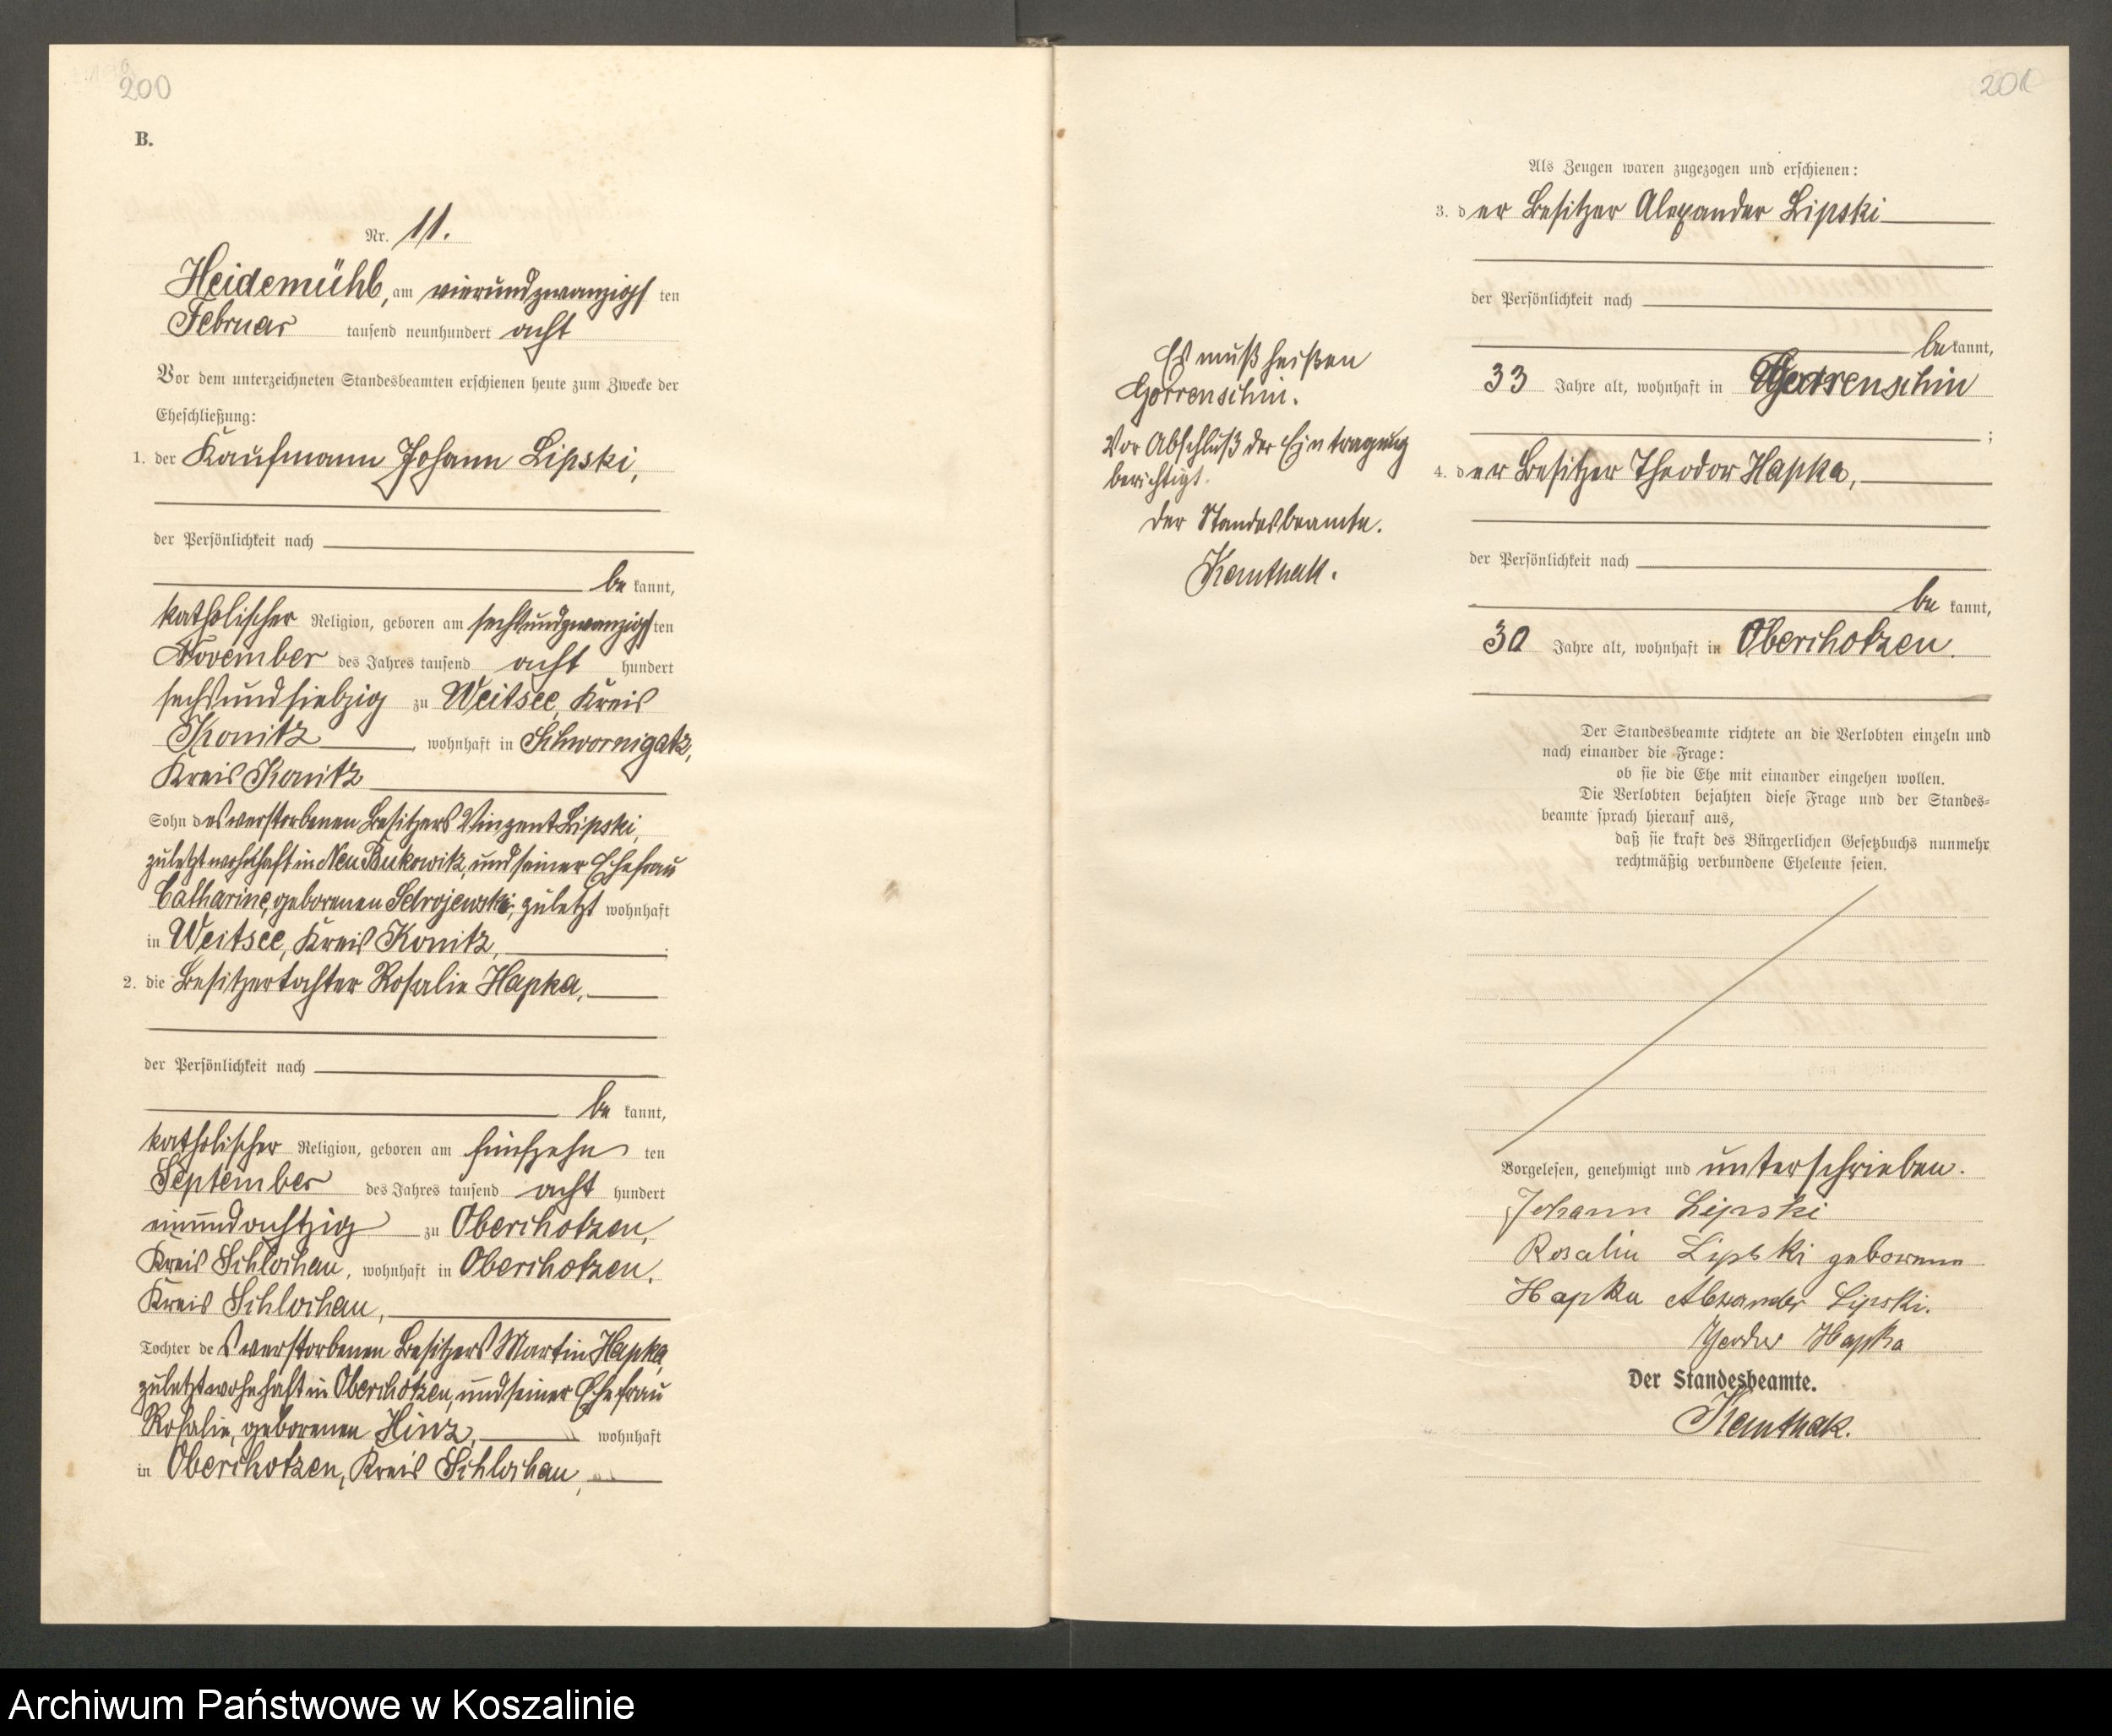 200
B.
Nr. 11.
Heidemühl, am vierundzwanzigsten
Februar tausend neunhundert acht
Vor dem unterzeichneten Standesbeamten erschienen heute zum Zwecke der
Eheschließung:
1. der Kaufmann Johann Lipski,
der Persönlichkeit nach
be kannt,
katholischer Religion, geboren am sechsundzwanzigsten
November des Jahres tausend acht hundert
sechsundsiebzig zu Weitsee, Kreis
Konitz, wohnhaft in Schwornigatz,
Kreis Konitz
Sohn des verstorbenen Besitzers Vinzent Lipski,
zuletzt wohnhaft in Neu Bukowitz, und seiner Ehefrau
Catharine, geborenen zuletzt wohnhaft
in Weitsee, Kreis Konitz,
2. die Besitzertochter Rosalie Hapka,
der Persönlichkeit nach
be kannt,
katholischer Religion, geboren am fünfzehn ten
September des Jahres tausend acht hundert
einundachtzig zu Oberchotzen,
Kreis Schlochau, wohnhaft in Oberchotzen,
Kreis Schlochau,
Tochter des verstorbenen Besitzers Martin Hapka,
zuletzt wohnhaft in Oberchotzen, und seiner Ehefrau
Rosalie, geborenen Hinz, wohnhaft
in Oberchotzen, Kreis Schlochau,
201
Als Zeugen waren zugezogen und erschienen:
3. der Besitzer Alexander Lipski
der Persönlichkeit nach
be kannt,
33 Jahre alt, wohnhaft in
;
Es muß heißen
Gorrenschin.
Vor Abschluß der Eintragung
berichtigt.
Der Standesbeamte.
Kemthak.
4. der Besitzer Theodor Hapka,
der Persönlichkeit nach
be kannt,
30 Jahre alt, wohnhaft in Oberchotzen.
Der Standesbeamte richtete an die Verlobten einzeln und
nach einander die Frage:
ob sie die Ehe mit einander eingehen wollen.
Die Verlobten bejahten diese Frage und der Standes-
beamte sprach hierauf aus,
daß sie kraft des Bürgerlichen Gesetzbuchs nunmehr
rechtmäßig verbundene Eheleute seien.
Vorgelesen, genehmigt und unterschrieben.
Johann Lipski
Rosalie Lipski geborene
Hapka Alexander Lipski.
Hapka
Der Standesbeamte.
Kemthak.
Archiwum Państwowe w Koszalinie